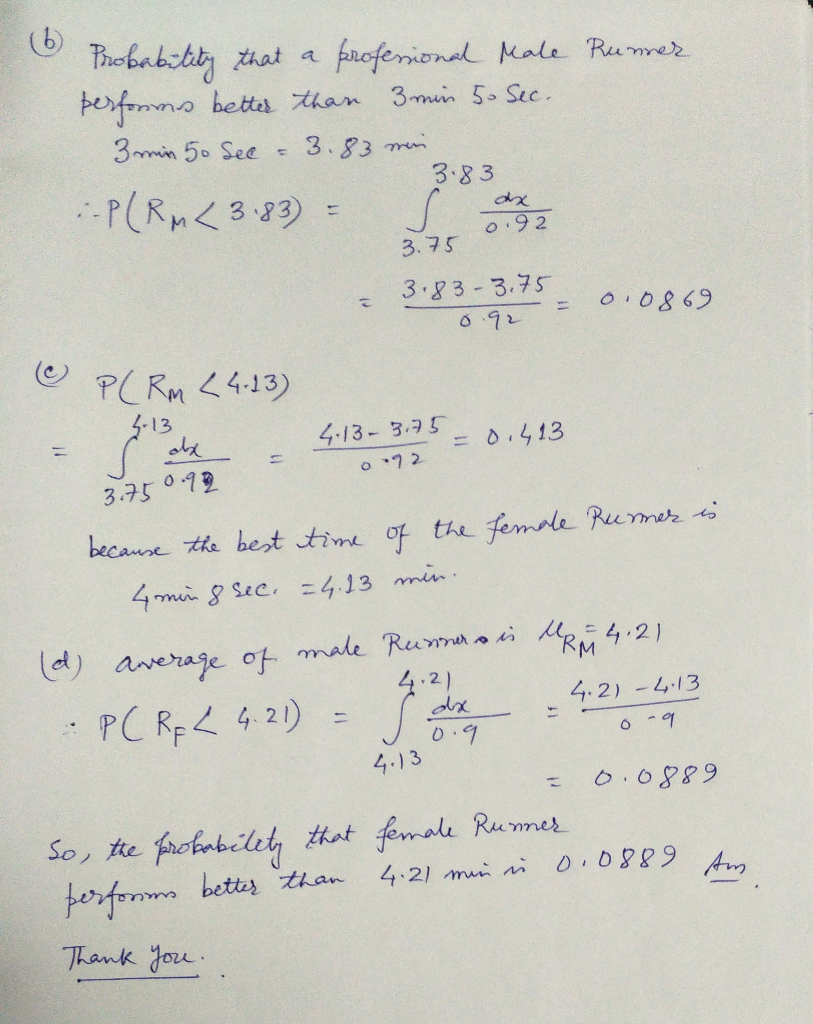 (b) Probability that a professional Male Runner
performs better than 3 min 50 Sec.
3 min 50 Sec = 3.83 min
∴ P(R_M < 3.83) = ∫_{3.75}^{3.83} dx/0.92
= (3.83 - 3.75)/0.92 = 0.0869
(c) P(R_M < 4.13)
= ∫_{3.75}^{4.13} dx/0.92 = (4.13 - 3.75)/0.92 = 0.413
because the best time of the female Runner is
4 min 8 Sec. = 4.13 min.
(d) average of male Runners is μ_{RM} = 4.21
∴ P(R_F < 4.21) = ∫_{4.13}^{4.21} dx/0.9 = (4.21 - 4.13)/0.9
= 0.0889
So, the probability that female Runner
performs better than 4.21 min is 0.0889 Ans.
Thank You.